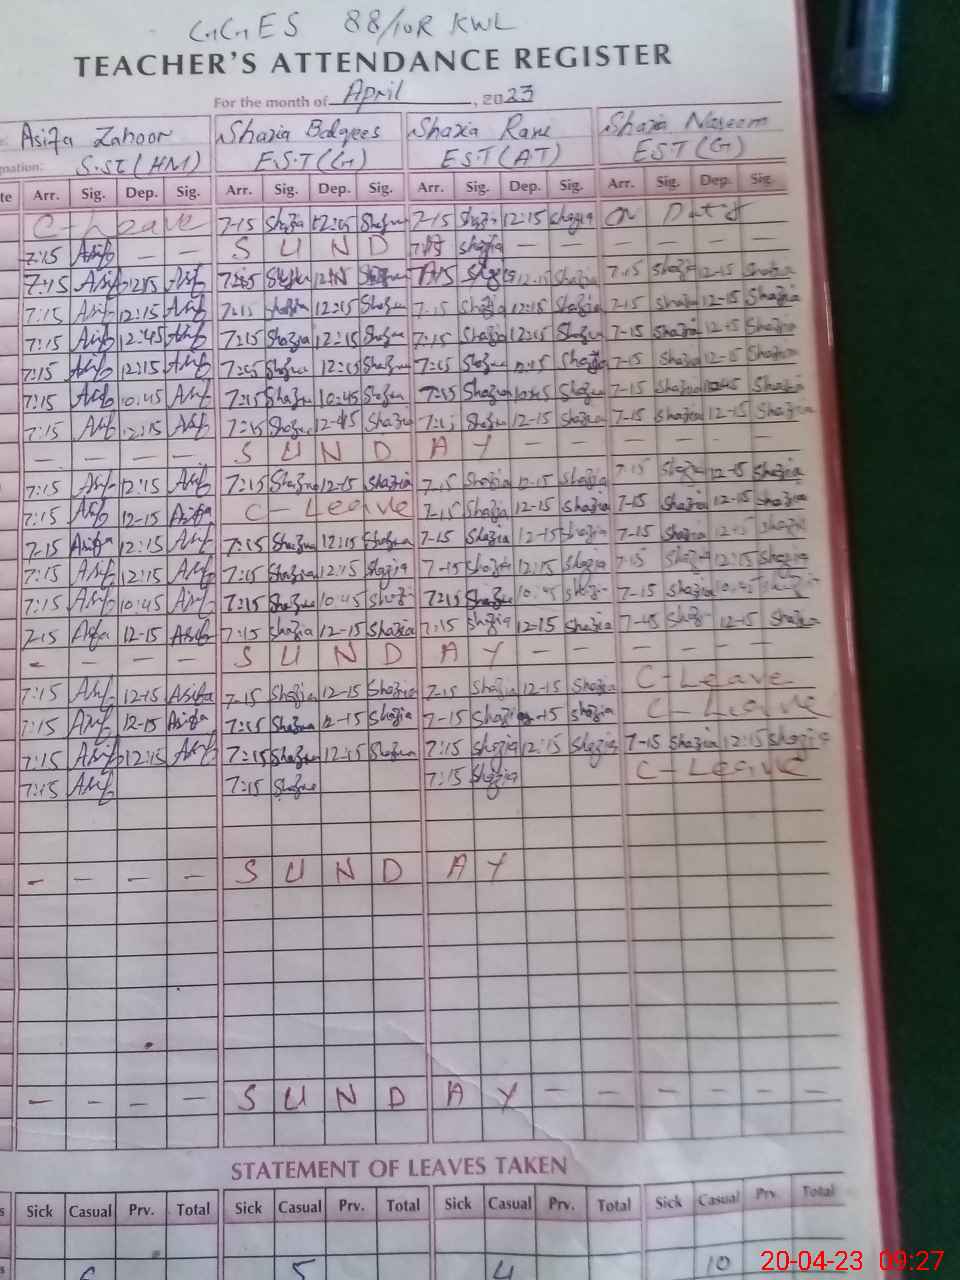 GGES 88/10R KWL
TEACHER'S ATTENDANCE REGISTER
For the month of April, 2023
Asifa Zahoor Shazia Balqees Shazia Rani Shazia Naseem
mation: S.ST (HM) E.S.T (G) E.S.T (AT) E.S.T (G)
te Arr. Sig. Dep. Sig. Arr. Sig. Dep. Sig. Arr. Sig. Dep. Sig. Arr. Sig. Dep. Sig
C-Leave 7-15 Shazia 12:15 7-15 Shazia 12:15 Shazia On Duty
7:15 Asif — — S U N D — — — — — —
7:15 Asif 12:15 Asif 12:15 Shazia 7:15 Shazia 12-15 Shazia
7:15 Asif 12:15 Asif 7:15 Shazia 12:15 7:15 Shazia 12:15 Shazia 7-15 12-15 Shazia
7:15 Asif 12:45 Asif 7:15 Shazia 12:15 7:15 Shazia 12:15 7-15 Shazia 12-15 Shazia
7:15 Asif 12:15 Asif 7:15 12:15 7:15 12:15 Shazia 7-15 Shazia 12-15 Shazia
7:15 Asif 10:45 Asif 7:15 10:45 7:15 Shazia 10:45 7-15 Shazia 10:45 Shazia
7:15 Asif 12:15 Asif 7:15 12-15 Shazia 7:15 12-15 Shazia 7-15 Shazia 12-15 Shazia
— — — — S U N D A Y — — — — — —
7:15 Asif 12:15 Asif 7:15 Shazia 12-15 Shazia 7:15 Shazia 12-15 Shazia 7:15 Shazia 12-15 Shazia
7:15 Asif 12-15 Asifa C-Leave 7-15 Shazia 12-15 Shazia 7-15 Shazia 12-15 Shazia
7-15 Asifa 12:15 Asif 7:15 Shazia 12:15 Shazia 7-15 Shazia 12-15 Shazia 7-15 Shazia 12-15 Shazia
7:15 Asif 12:15 Asif 7:15 Shazia 12:15 Shazia 7-15 Shazia 12:15 Shazia 7:15 Shazia 12:15 Shazia
7:15 Asif 10:45 Asif 7:15 Shazia 10:45 7:15 Shazia 10:45 7-15 Shazia 10:45
7:15 Asifa 12-15 Asif 7:15 Shazia 12-15 Shazia 7:15 Shazia 12-15 Shazia 7-45 12-15 Shazia
— — — — S U N D A Y — — — — — —
7:15 Asif 12-15 Asifa 7-15 Shazia 12-15 Shazia 7-15 Shazia 12-15 Shazia C-Leave
7:15 Asif 12-15 Asifa 7:15 Shazia 12-15 Shazia 7-15 Shazia Shazia C-Leave
7:15 Asif 12:15 Asif 7:15 Shazia 12:15 Shazia 7:15 Shazia 12:15 Shazia 7-15 Shazia 12:15 Shazia
7:15 Asif 7:15 Shazia 7:15 Shazia C-Leave
— — — — S U N D A Y
— — — — S U N D A Y — — — — — —
STATEMENT OF LEAVES TAKEN
s Sick Casual Prv. Total Sick Casual Prv. Total Sick Casual Prv. Total Sick Casual Prv. Total
s 5 4 10
20-04-23 09:27